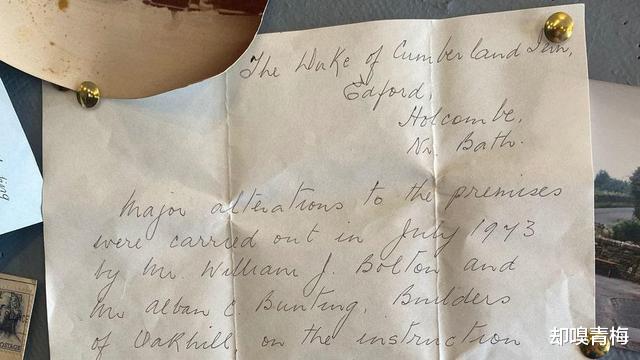 The Duke of Cumberland Inn,
Edford,
Holcombe,
Nr. Bath.
Major alterations to the premises
were carried out in July 1973
by Mr. William J. Bolton and
Mr Alban C. Bunting, Builders
of Oakhill on the instruction
POSTAGE
却嗅青梅